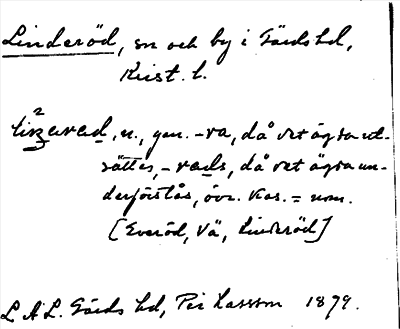 Linderöd, sn och by i Gärds hd,
Krist. l.
linarad, n., gen. -ra, då det ägda ut-
sättes, -rads, då det ägda un-
derförstås, övr. kas. = nom.
[Everöd, Vä, Linderöd]
L A L. Gärds hd, Per Larsson 1879.